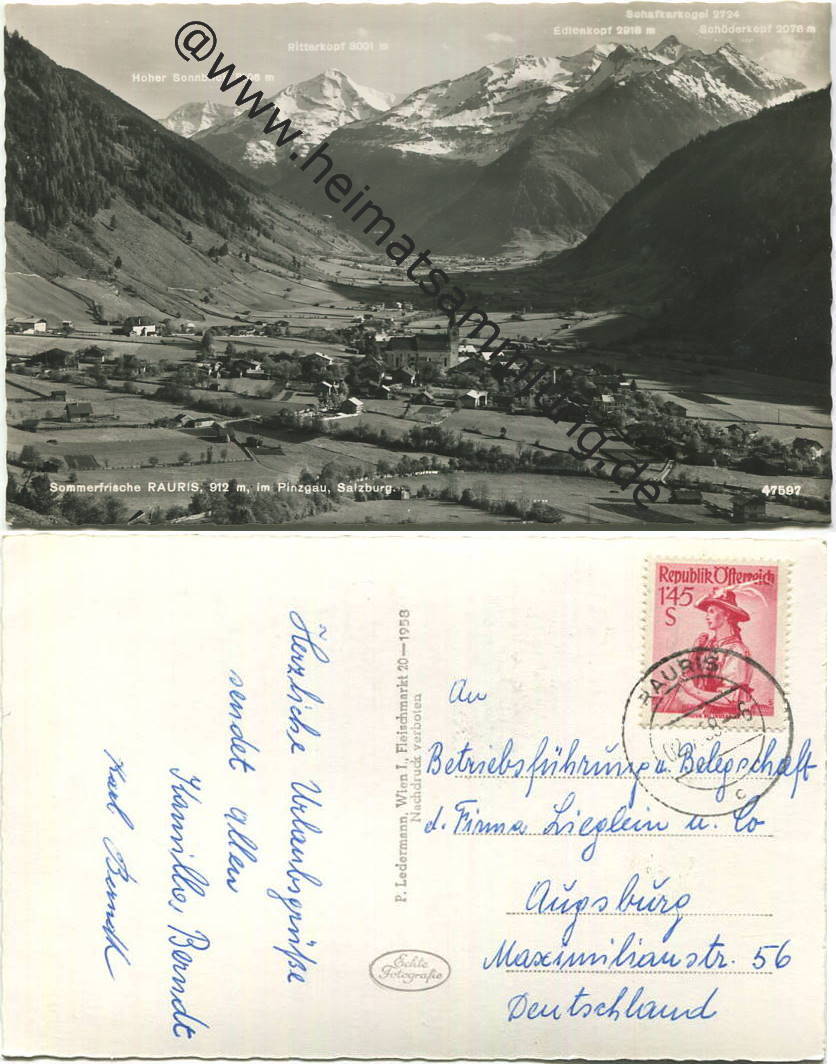 Schafkarkogel 2724
Ritterkopf 3001 m
Edlenkopf 2918 m
Schöderkopf 2078 m
Hoher Sonnblick
@www.heimatsammlung.de
Sommerfrische RAURIS, 912 m, im Pinzgau, Salzburg.
47597
Herzliche Urlaubsgrüße
sendet allen
Kamillo, Berndt
Karl Berndt
P. Ledermann, Wien I., Fleischmarkt 20—1958
Nachdruck verboten
Echte
Fotografie
Republik Österreich
1'45
S
RAURIS
c
An
Betriebsführung u. Belegschaft
d. Firma Lieglein u. Co
Augsburg
Maximilianstr. 56
Deutschland